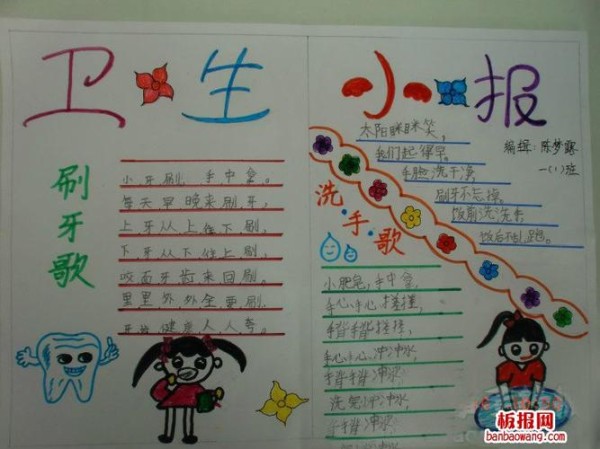 卫生小报
编辑：陈梦露
一(1)班
刷牙歌
小牙刷，手中拿。
每天早晚来刷牙，
上牙从上往下刷，
下牙从下往上刷，
咬面牙齿来回刷，
里里外外全要刷，
牙齿健康人人夸。
太阳眯眯笑，
我们起得早。
手脸洗干净，
刷牙不忘掉。
饭前洗洗手
饭后不乱跑。
洗手歌
小肥皂，手中拿，
手心手心搓搓，
手背手背搓搓，
手心手心冲冲水，
手背手背冲冲水，
洗完
手背冲冲水，
板报网
banbaowang.com